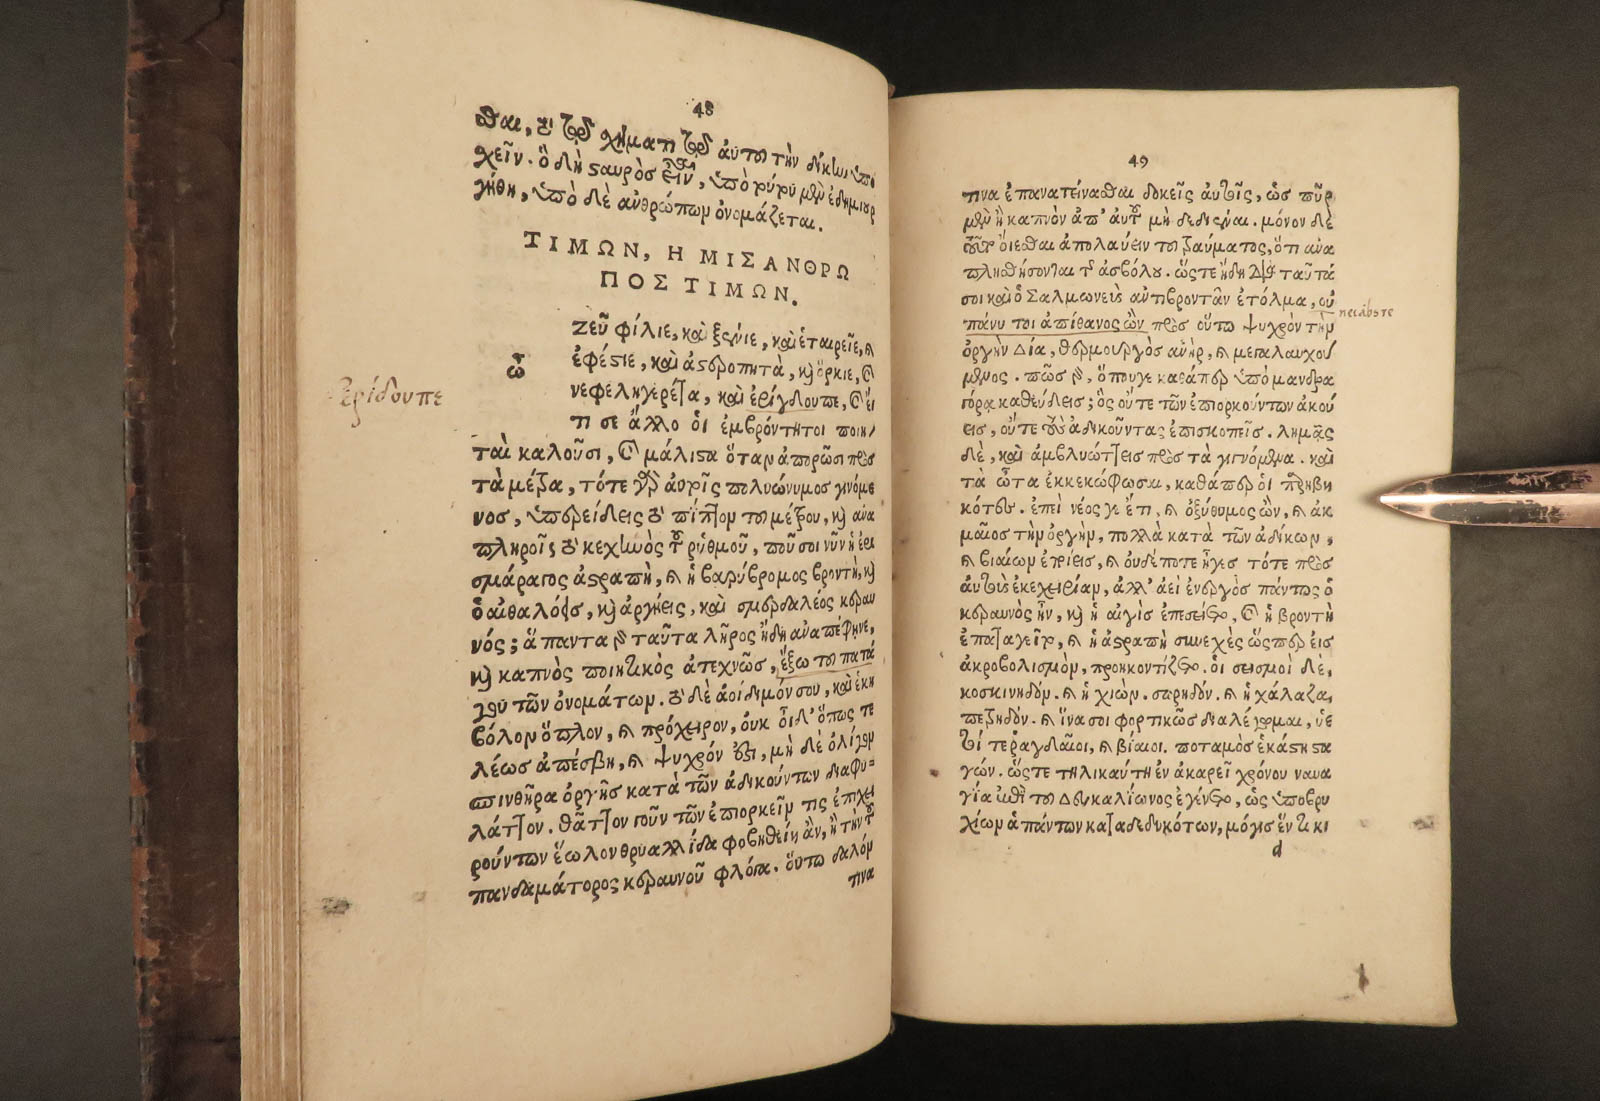 48
θαι, τὸ τῷ χήματι τῷ αὐτοῦ τὴν δίκην ὑπο
χεῖν. ὃ δὴ σαυρὸς, ὑπὸ μὲν ἐδημιουρ
γήθη, ὑπὸ δὲ ἀνθρώπων ὀνομάζεται.
ΤΙΜΩΝ, Η ΜΙΣΑΝΘΡΩ
ΠΟΣ ΤΙΜΩΝ.
ω
ΖΕΥ φίλιε, καὶ ξένιε, καὶ ἑταιρεῖε, καὶ
ἐφέστιε, καὶ ἀστροπητὰ, καὶ ὅρκιε, καὶ
νεφεληγερέτα, καὶ ἐρίγδουπε, καὶ εἴ
τι σε ἄλλο οἱ ἐμβρόντητοι ποιη/
ταὶ καλοῦσι, καὶ μάλιστα ὅταν ἀπορῶσι πρὸς
τὰ μέτρα, τότε γὰρ αὐτοῖς πολυώνυμος γινόμε
νος, ὑπερείδεις τὸ πῖπτον τοῦ μέτρου, καὶ ἀνα
πληροῖς τὸ κεχηνὸς τοῦ ῥυθμοῦ, ποῦ σοι νῦν ἡ ἐρι
σμάραγος ἀστραπὴ, καὶ ἡ βαρύβρομος βροντὴ, καὶ
ὁ αἰθαλόεις, καὶ ἀργήεις, καὶ σμερδαλέος κεραυ
νός; ἅπαντα γὰρ ταῦτα λῆρος ἤδη ἀναπέφηνε,
καὶ καπνὸς ποιητικὸς ἀτεχνῶς, ἔξω τοῦ πατά
γου τῶν ὀνομάτων. τὸ δὲ ἀοίδιμόν σου, καὶ ἑκη
βόλον ὅπλον, καὶ πρόχειρον, οὐκ οἶδ' ὅπως τε
λέως ἀπέσβη, καὶ ψυχρόν ἐστι, μὴ δὲ ὀλίγον
σπινθῆρα ὀργῆς κατὰ τῶν ἀδικούντων διαφυ=
λάττον. θᾶττον γοῦν τῶν ἐπιορκεῖν τις ἐπιχει
ρούντων ἕωλον θρυαλλίδα φοβηθείη ἂν, ἢ τὴν τοῦ
πανδαμάτορος κεραυνοῦ φλόγα. οὕτω δαλόν
τινα
ἐρίδουπε
49
τινα ἐπανατείνασθαι δοκεῖς αὐτοῖς, ὡς πῦρ
μὲν ἢ καπνὸν ἀπ' αὐτοῦ μὴ δεδιέναι. μόνον δὲ
τοῦτο οἴεσθαι ἀπολαύειν τοῦ τραύματος, ὅτι ἀνα
πλησθήσονται τῆς ἀσβόλου. ὥστε ἤδη διὰ ταῦτά
σοι καὶ ὁ Σαλμωνεὺς ἀντιβροντᾶν ἐτόλμα, οὐ
πάνυ τοι ἀπίθανος ὢν πρὸς οὕτω ψυχρὸν τὴν
ὀργὴν Δία, θερμουργὸς ἀνὴρ, καὶ μεγαλαυχού
μενος. πῶς γὰρ, ὅπουγε καθάπερ ὑπὸ μανδρα
γόρᾳ καθεύδεις; ὃς οὔτε τῶν ἐπιορκούντων ἀκού
εις, οὔτε τοὺς ἀδικοῦντας ἐπισκοπεῖς. λημᾷς
δὲ, καὶ ἀμβλυώττεις πρὸς τὰ γιγνόμενα. καὶ
τὰ ὦτα ἐκκεκώφωσαι, καθάπερ οἱ παρηβη
κότες. ἐπεὶ νέος γε ἔτι, καὶ ὀξύθυμος ὢν, καὶ ἀκ
μαῖος τὴν ὀργὴν, πολλὰ κατὰ τῶν ἀδίκων,
καὶ βιαίων ἐποίεις, καὶ οὐδέποτε ἦγες τότε πρὸς
αὐτοὺς ἐκεχειρίαν, ἀλλ' ἀεὶ ἐνεργὸς πάντως ὁ
κεραυνὸς ἦν, καὶ ἡ αἰγὶς ἐπεσείετο, καὶ ἡ βροντὴ
ἐπαταγεῖτο, καὶ ἡ ἀστραπὴ συνεχὲς ὥσπερ εἰς
ἀκροβολισμὸν, προηκοντίζετο. οἱ σεισμοὶ δὲ,
κοσκινηδὸν. καὶ ἡ χιὼν. σωρηδὸν. καὶ ἡ χάλαζα,
πετρηδὸν. καὶ ἵνα σοι φορτικῶς διαλέγωμαι, ὑε
τοί τε ῥαγδαῖοι, καὶ βίαιοι. ποταμὸς ἑκάστη στα
γών. ὥστε τηλικαύτη ἐν ἀκαρεῖ χρόνου ναυα
γία ἐπὶ τοῦ Δευκαλίωνος ἐγένετο, ὡς ὑποβρυ
χίων ἁπάντων καταδεδυκότων, μόγις ἕν τι κι
d